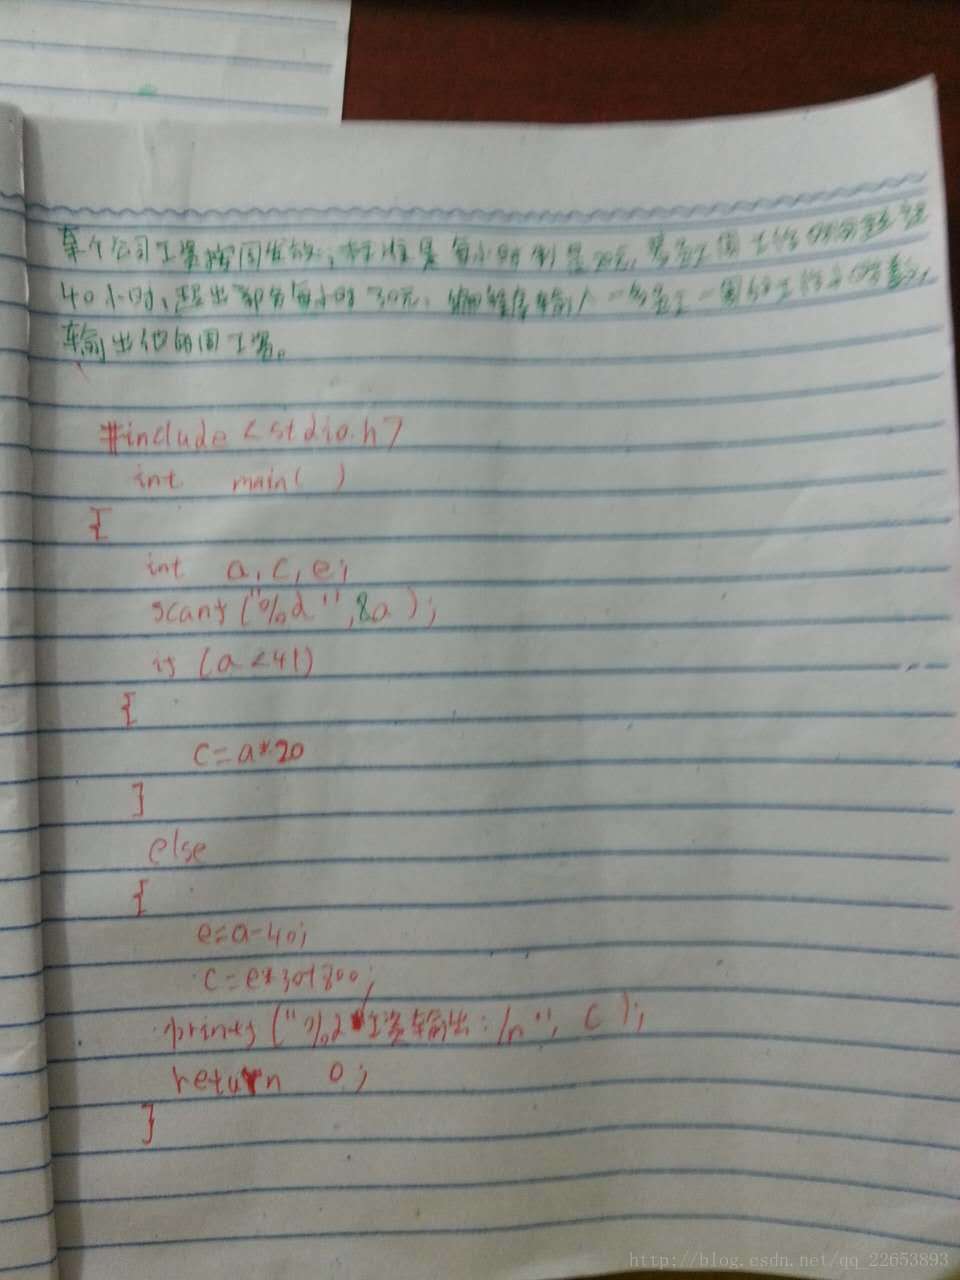 某个公司工资按周发放,标准是每小时制是20元,若员工周工作时间超过
40小时,超出部分每小时30元,编程序输入一名员工一周的工作小时
输出他的周工资。
#include <stdio.h>
int main( )
{
int a,c,e;
scanf("%d",&a);
if (a<41)
{
c=a*20
}
else
{
e=a-40;
c=e*30+800;
printf("%d 工资输出:/n", c);
return 0;
}
http://blog.csdn.net/qq_22653893